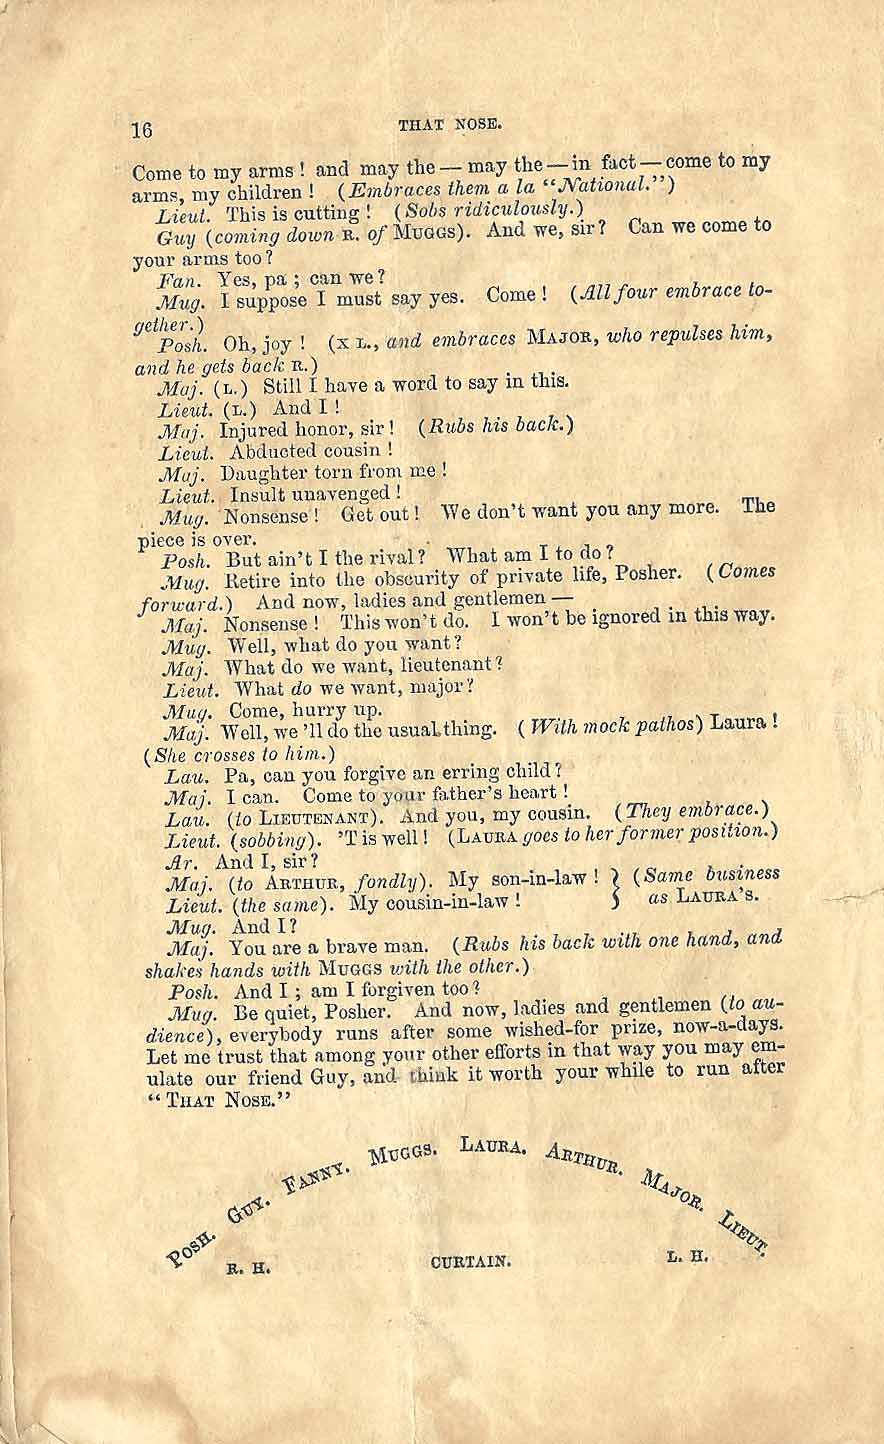 16 THAT NOSE.
Come to my arms ! and may the — may the — in fact — come to my
arms, my children ! (Embraces them a la "National.")
Lieut. This is cutting ! (Sobs ridiculously.)
Guy (coming down R. of MUGGS). And we, sir? Can we come to
your arms too?
Fan. Yes, pa ; can we?
Mug. I suppose I must say yes. Come ! (All four embrace to-
gether.)
Posh. Oh, joy ! (X L., and embraces MAJOR, who repulses him,
and he gets back R.)
Maj. (L.) Still I have a word to say in this.
Lieut. (L.) And I !
Maj. Injured honor, sir ! (Rubs his back.)
Lieut. Abducted cousin !
Maj. Daughter torn from me !
Lieut. Insult unavenged !
Mug. Nonsense ! Get out ! We don't want you any more. The
piece is over.
Posh. But ain't I the rival? What am I to do?
Mug. Retire into the obscurity of private life, Posher. (Comes
forward.) And now, ladies and gentlemen —
Maj. Nonsense ! This won't do. I won't be ignored in this way.
Mug. Well, what do you want?
Maj. What do we want, lieutenant?
Lieut. What do we want, major?
Mug. Come, hurry up.
Maj. Well, we 'll do the usual thing. (With mock pathos) Laura !
(She crosses to him.)
Lau. Pa, can you forgive an erring child?
Maj. I can. Come to your father's heart !
Lau. (to LIEUTENANT). And you, my cousin. (They embrace.)
Lieut. (sobbing). 'T is well ! (LAURA goes to her former position.)
Ar. And I, sir?
Maj. (to ARTHUR, fondly). My son-in-law ! } (Same business
Lieut. (the same). My cousin-in-law ! } as LAURA's.
Mug. And I?
Maj. You are a brave man. (Rubs his back with one hand, and
shakes hands with MUGGS with the other.)
Posh. And I ; am I forgiven too?
Mug. Be quiet, Posher. And now, ladies and gentlemen (to au-
dience), everybody runs after some wished-for prize, now-a-days.
Let me trust that among your other efforts in that way you may em-
ulate our friend Guy, and think it worth your while to run after
"THAT NOSE."
POSH. GUY. FANNY. MUGGS. LAURA. ARTHUR. MAJOR. LIEUT.
R. H. CURTAIN. L. H.